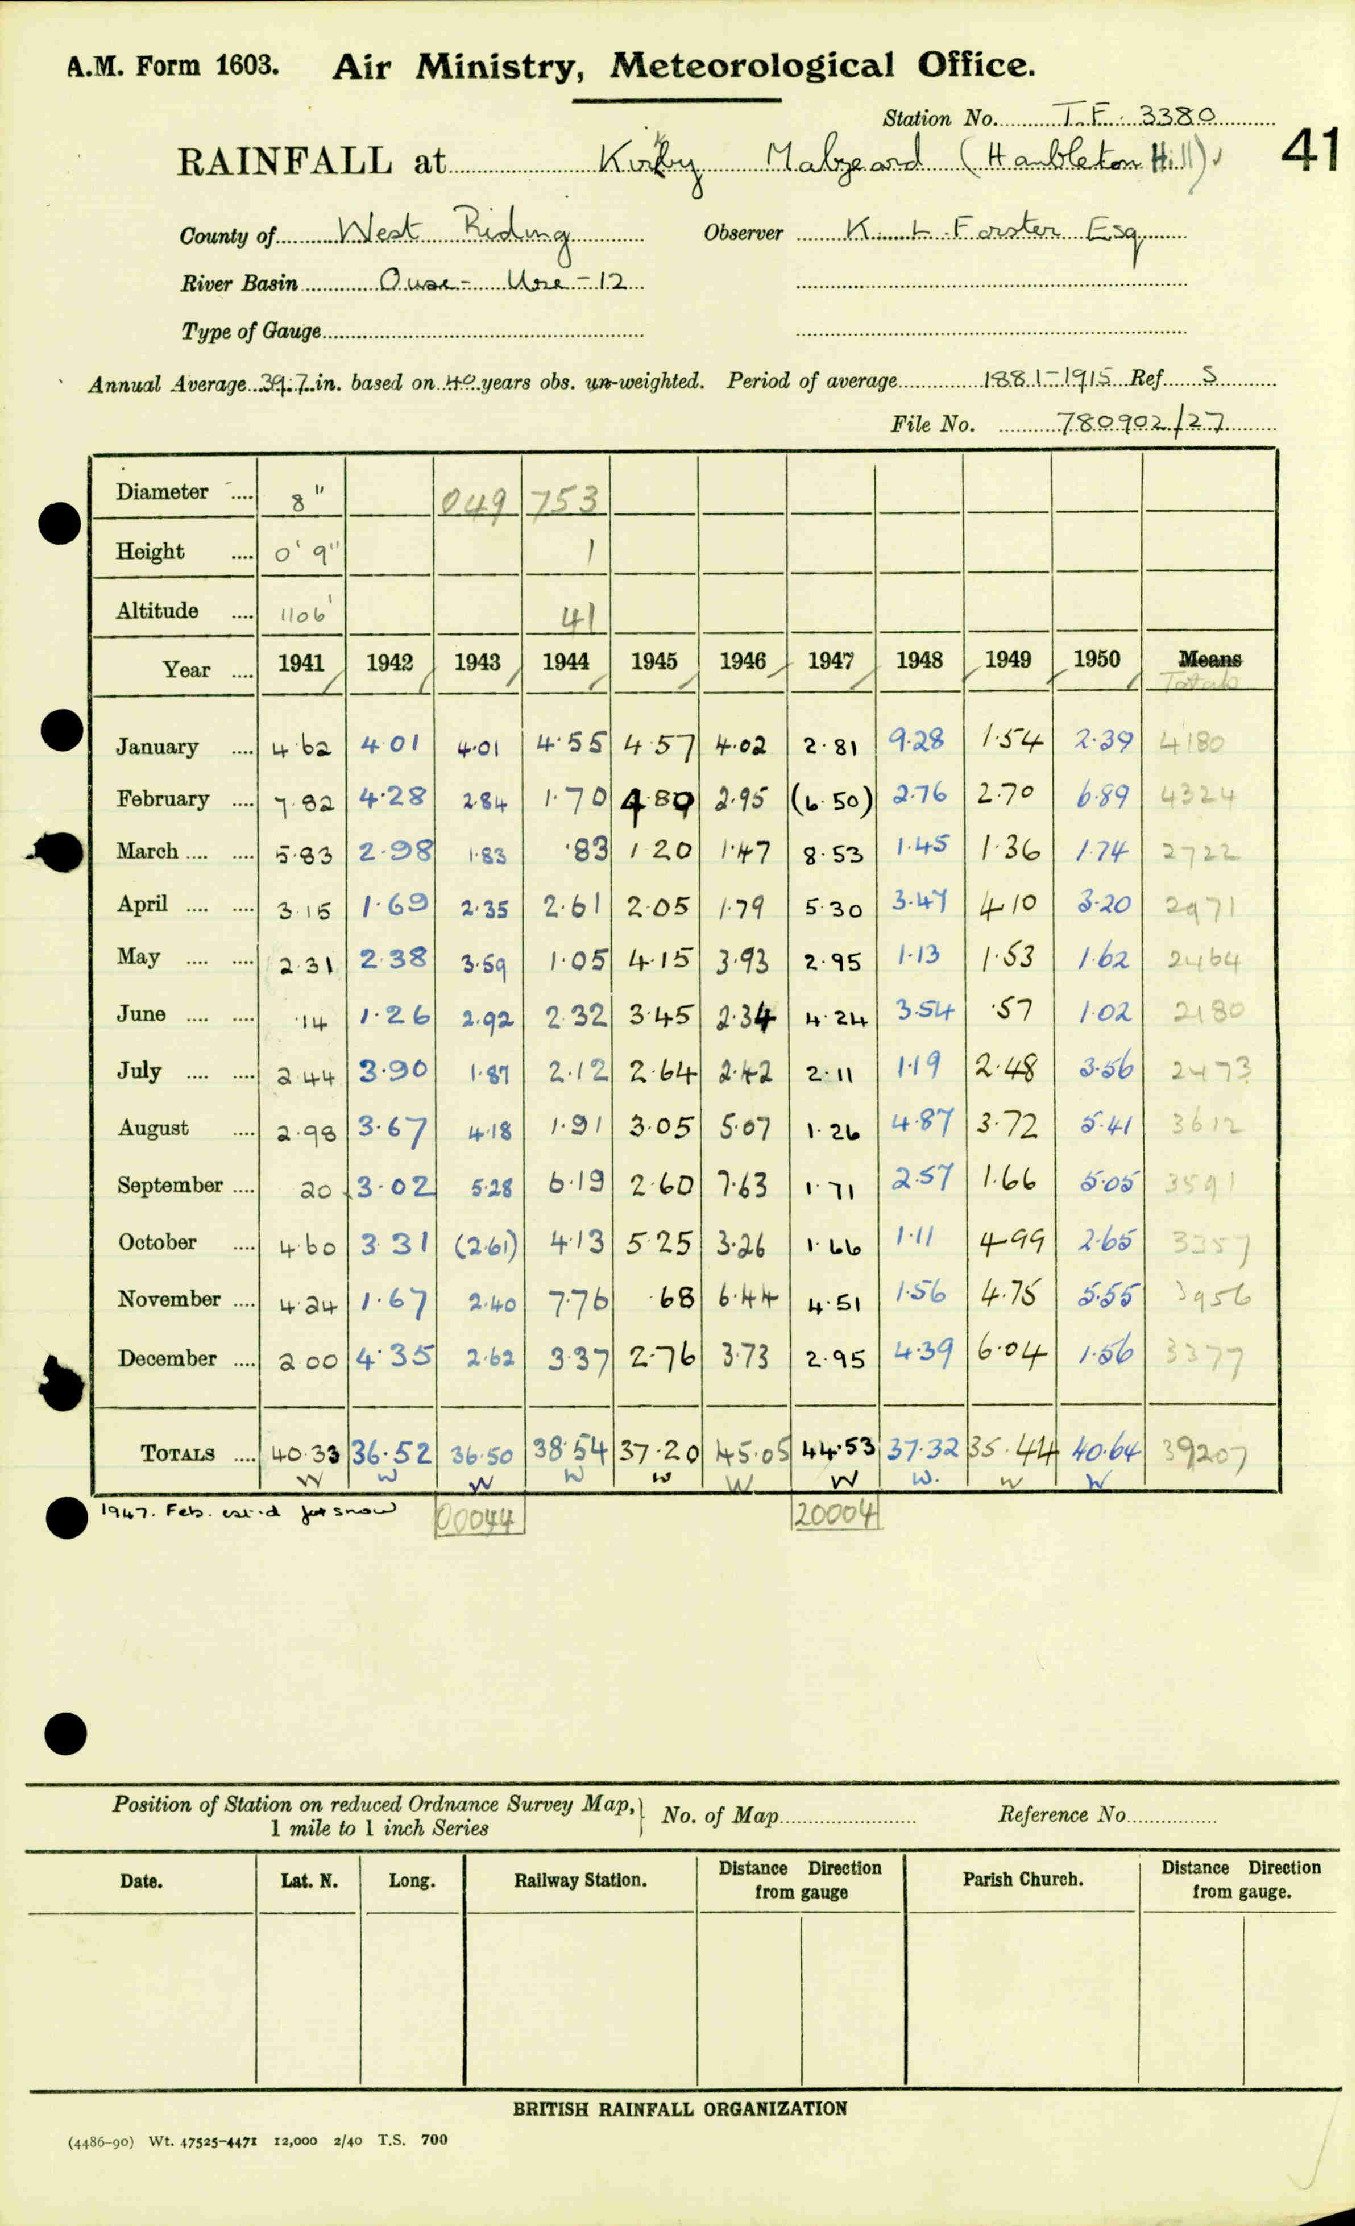 A.M. Form 1603. Air Ministry, Meteorological Office.
Station No. T.F. 3380
41
RAINFALL at Kirkby Malzeard (Hambleton Hill)
County of West Riding Observer K. L. Forster Esq
River Basin Ouse - Ure - 12
Type of Gauge
Annual Average 39.7 in. based on 40 years obs. un-weighted. Period of average 1881-1915 Ref. S
File No. 780902/27
Diameter .... 8" 049 753
Height .... 0' 9" 1
Altitude .... 1106' 41
Year .... 1941 1942 1943 1944 1945 1946 1947 1948 1949 1950 Means
Totals
January .... 4.62 4.01 4.01 4.55 4.57 4.02 2.81 9.28 1.54 2.39 4180
February .... 7.82 4.28 2.84 1.70 4.80 2.95 (6.50) 2.76 2.70 6.89 4324
March .... .... 5.83 2.98 1.83 .83 1.20 1.47 8.53 1.45 1.36 1.74 2722
April .... .... 3.15 1.69 2.35 2.61 2.05 1.79 5.30 3.47 4.10 3.20 2971
May .... .... 2.31 2.38 3.59 1.05 4.15 3.93 2.95 1.13 1.53 1.62 2464
June .... .... .14 1.26 2.92 2.32 3.45 2.34 4.24 3.54 .57 1.02 2180
July .... .... 2.44 3.90 1.87 2.12 2.64 2.42 2.11 1.19 2.48 3.56 2473
August .... 2.98 3.67 4.18 1.91 3.05 5.07 1.26 4.87 3.72 5.41 3612
September .... 20 3.02 5.28 6.19 2.60 7.63 1.71 2.57 1.66 5.05 3591
October .... 4.60 3.31 (2.61) 4.13 5.25 3.26 1.66 1.11 4.99 2.65 3357
November .... 4.24 1.67 2.40 7.76 .68 6.44 4.51 1.56 4.75 5.55 3956
December .... 2.00 4.35 2.62 3.37 2.76 3.73 2.95 4.39 6.04 1.56 3377
TOTALS .... 40.33 36.52 36.50 38.54 37.20 45.05 44.53 37.32 35.44 40.64 39207
W W W W W W W W. W W
1947. Feb. est.d for snow 00044 20004
Position of Station on reduced Ordnance Survey Map, No. of Map Reference No.
1 mile to 1 inch Series
Date. Lat. N. Long. Railway Station. Distance Direction from gauge Parish Church. Distance Direction from gauge.
BRITISH RAINFALL ORGANIZATION
(4486-90) Wt. 47525-4471 12,000 2/40 T.S. 700